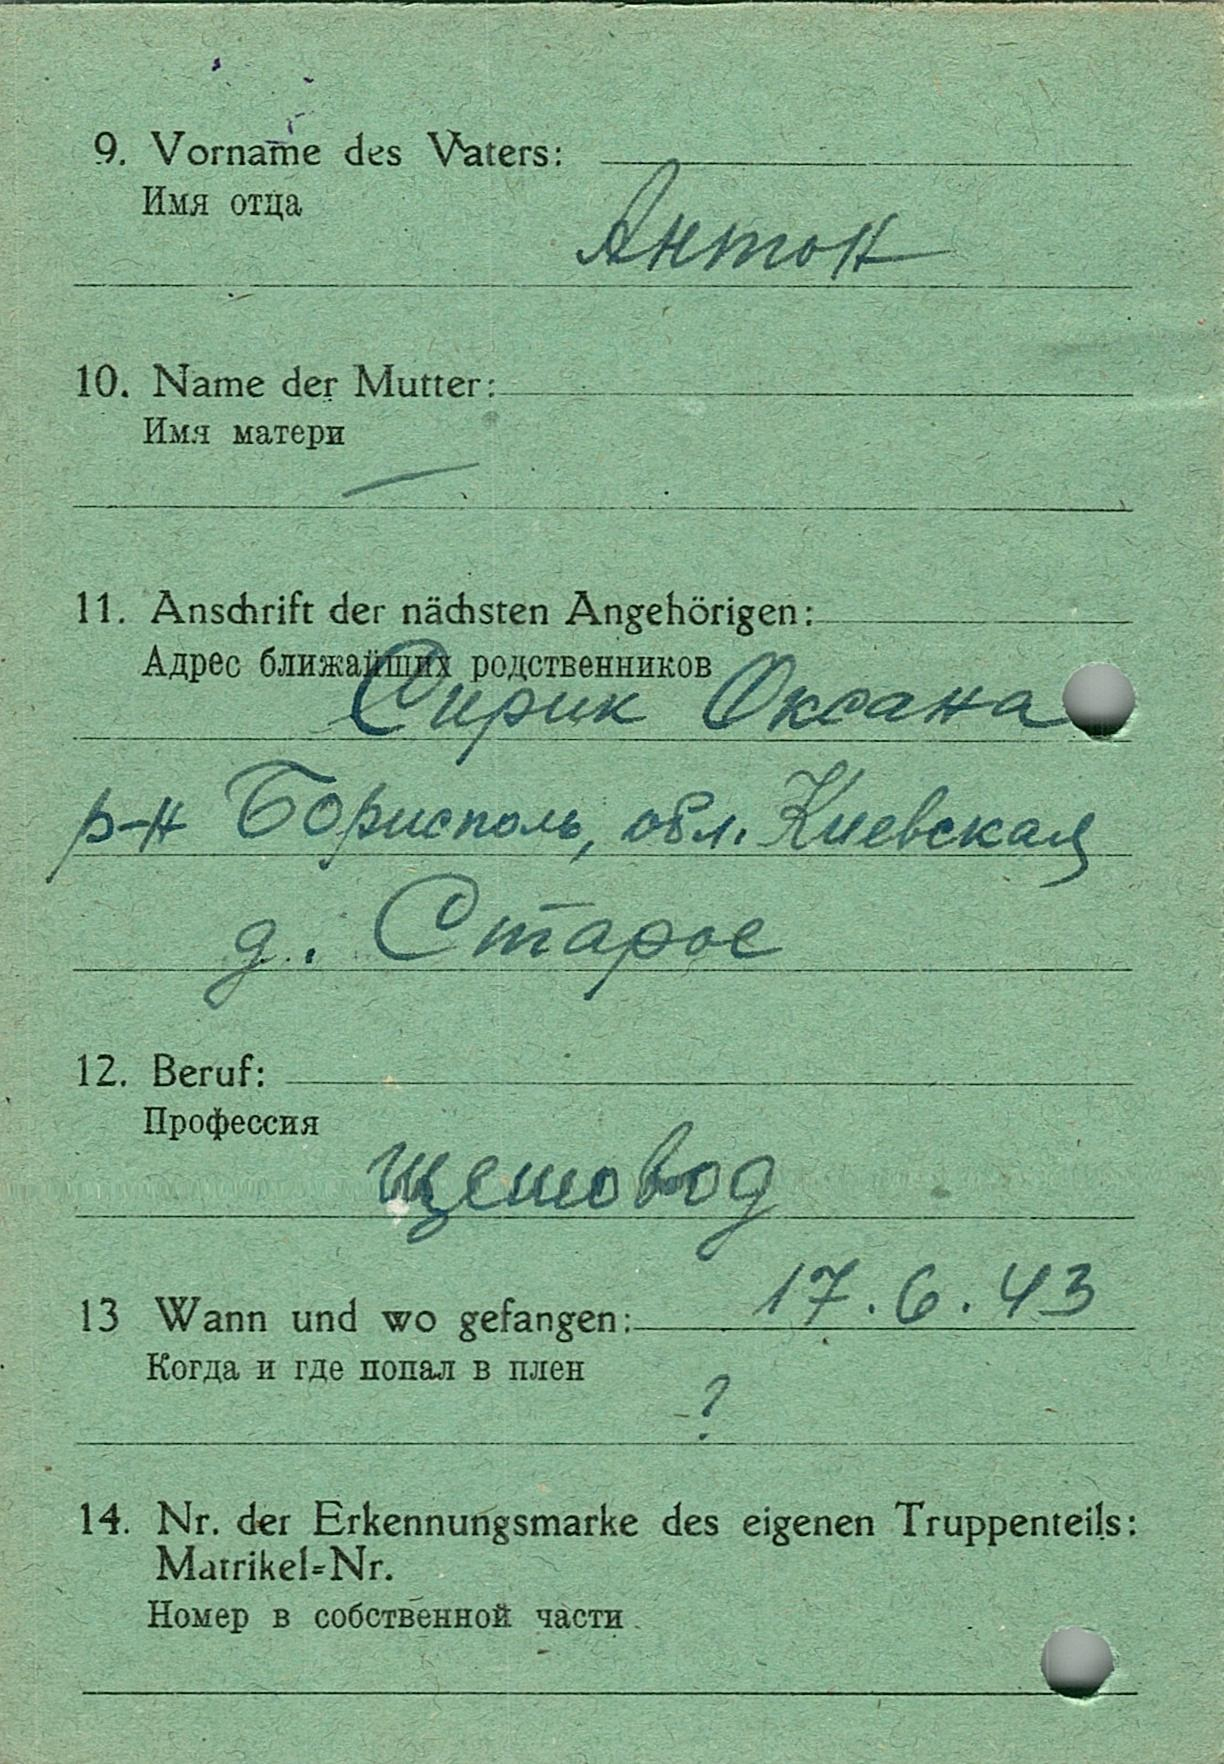 9. Vorname des Vaters:
Имя отца
Антон
10. Name der Mutter:
Имя матери
—
11. Anschrift der nächsten Angehörigen:
Адрес ближайших родственников
Сирик Оксана
р-н Борисполь, обл. Киевская
д. Старое
12. Beruf:
Профессия
щетовод
13 Wann und wo gefangen: 17.6.43
Когда и где попал в плен
?
14. Nr. der Erkennungsmarke des eigenen Truppenteils:
Matrikel=Nr.
Номер в собственной части